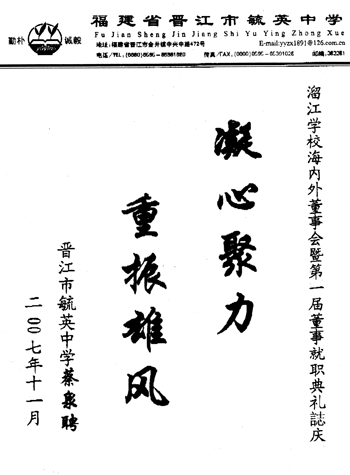 勤朴 诚毅
福建省晋江市毓英中学
Fu Jian Sheng Jin Jiang Shi Yu Ying Zhong Xue
地址:福建省晋江市金井镇中兴中路472号
E-mail:yyzx1891@126.com.cn
电话/TEL:(0086)0595-85381680
传真/FAX:(0086)0595-85391026
邮编:362251
溜江学校海内外董事会暨第一届董事就职典礼誌庆
凝心聚力
重振雄风
晋江市毓英中学 蔡泉聘
二〇〇七年十一月